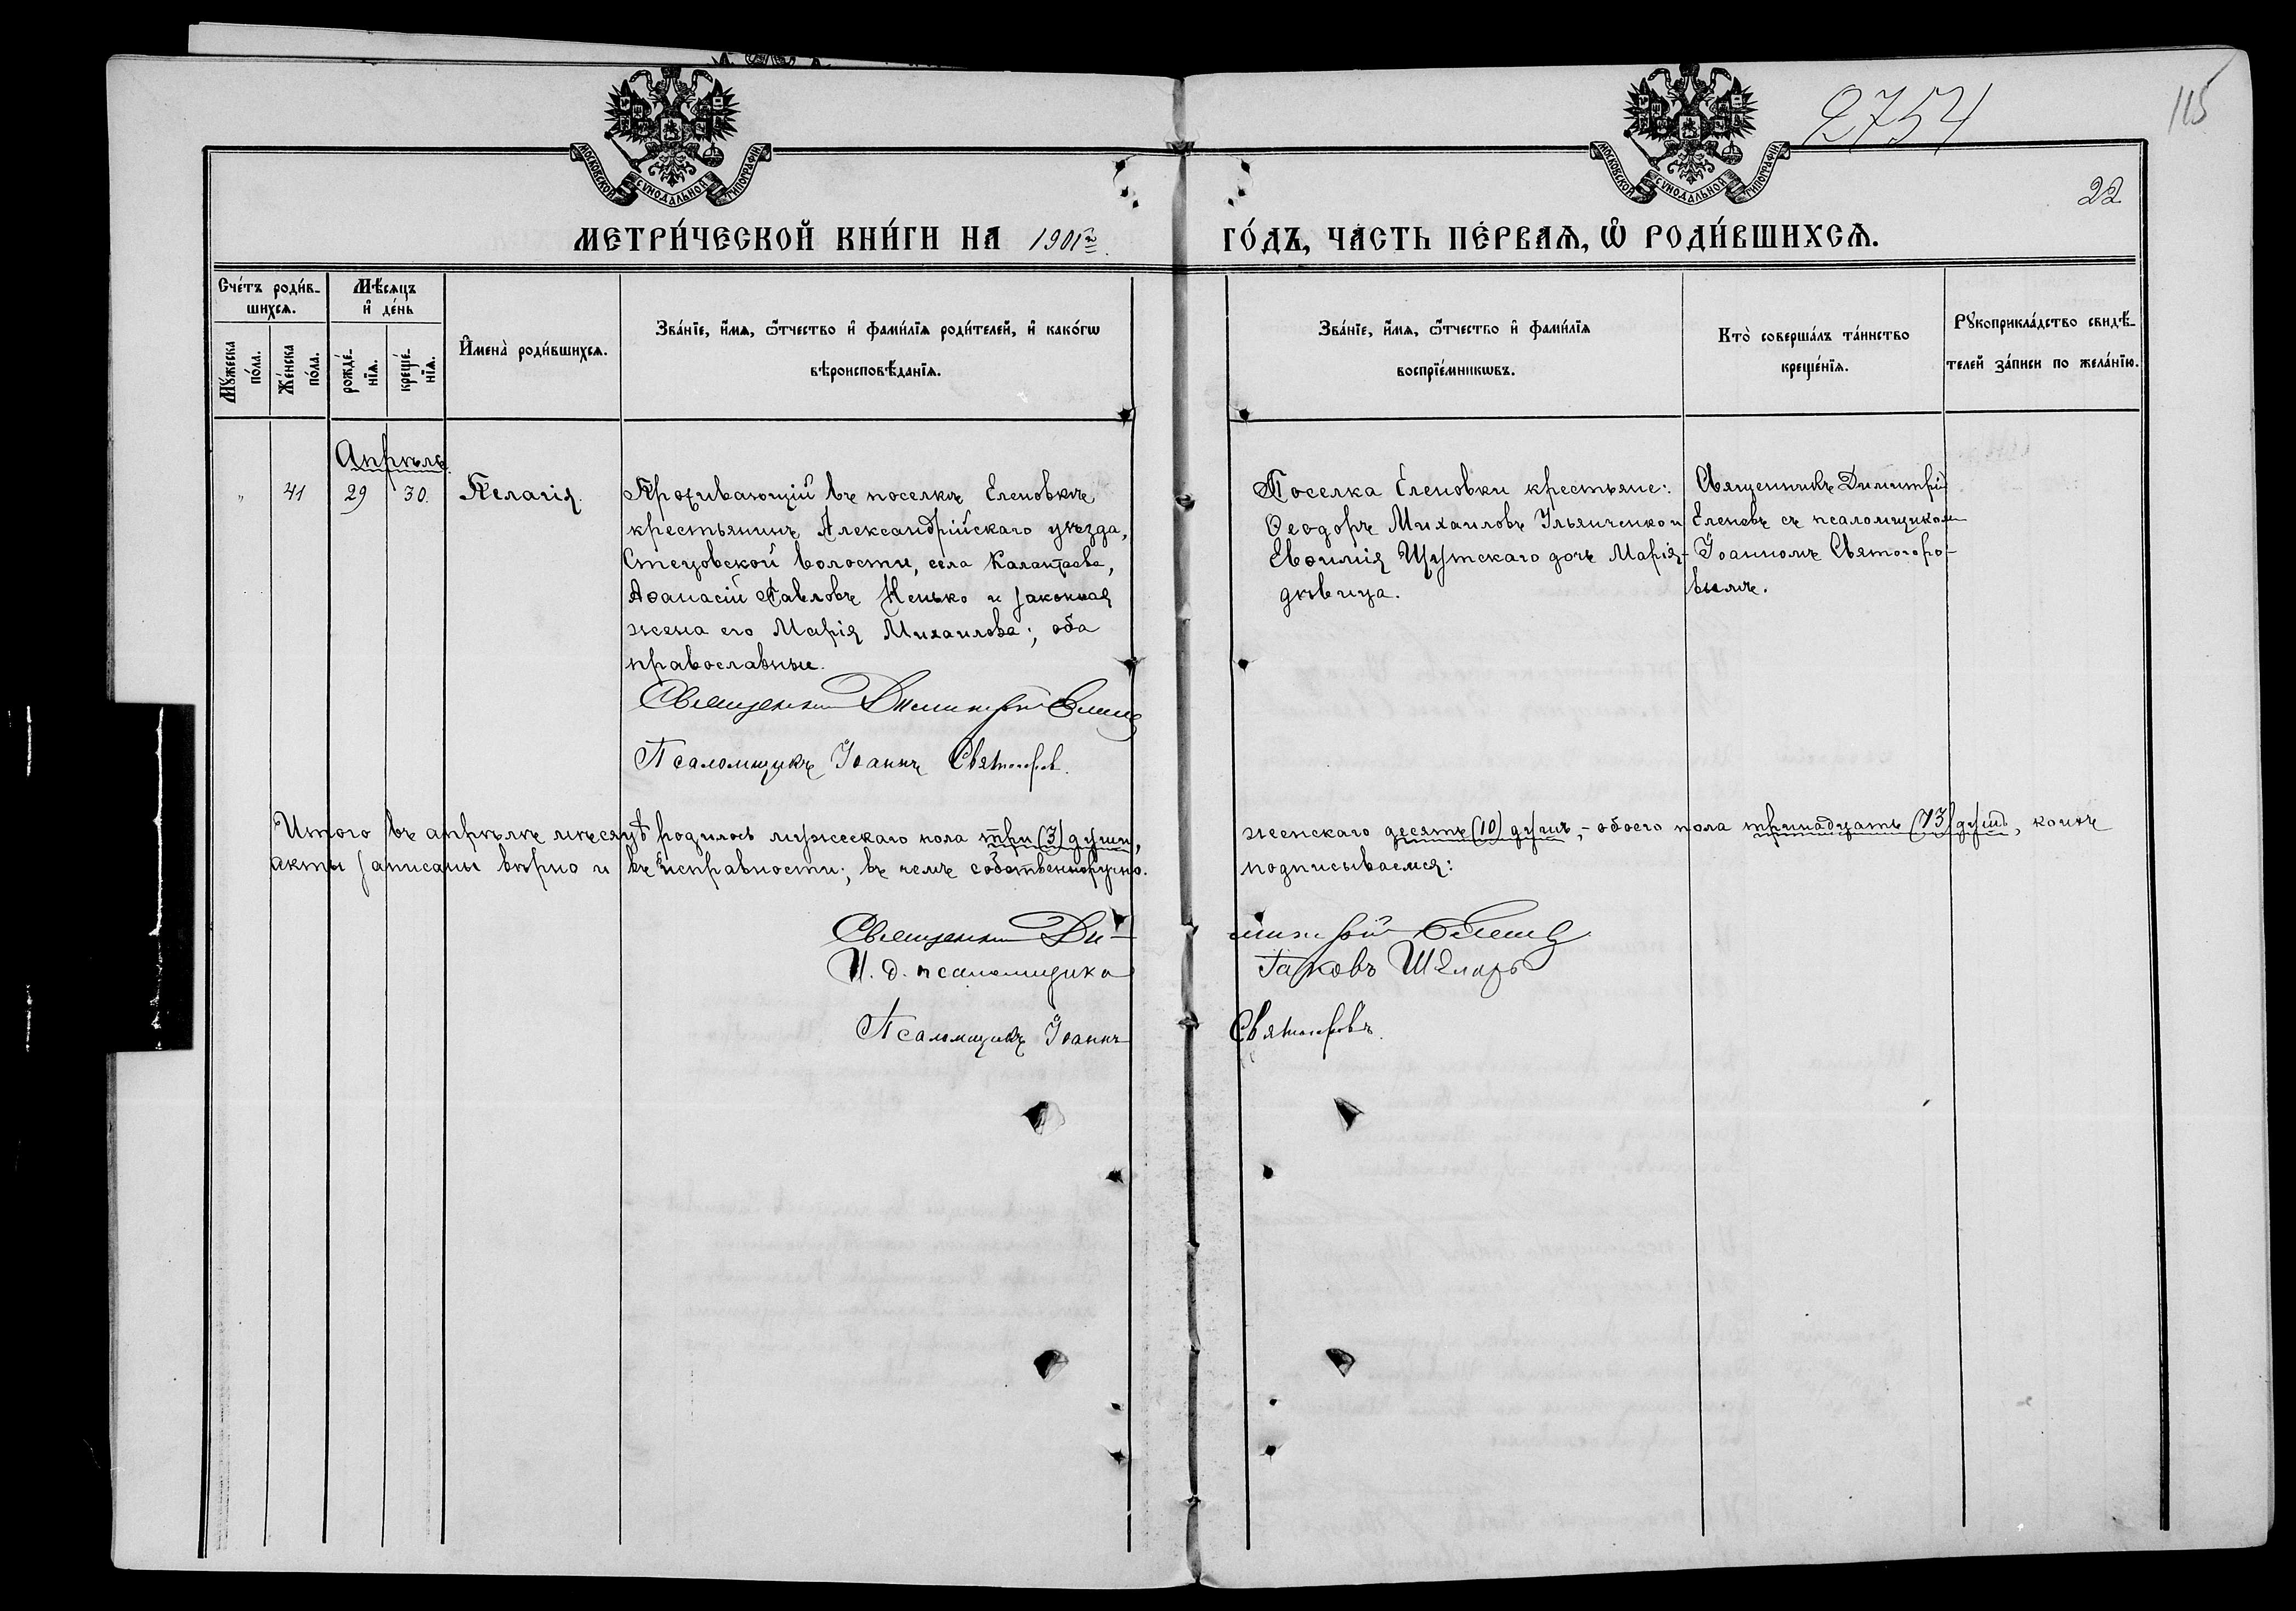 2754
115
22
МОСКОВСКОЙ СѴНОДАЛЬНОЙ ТИПОГРАФІИ
МОСКОВСКОЙ СѴНОДАЛЬНОЙ ТИПОГРАФІИ
МЕТРИ́ЧЕСКОЙ КНИ́ГИ НА 1901 г. ГО́ДЪ, ЧА́СТЬ ПЕ́РВАѦ, Ѽ РОДИ́ВШИХСѦ.
Сче́тъ роди́в-
шихсѧ.
Мꙋ́жеска по́ла.
Же́нска по́ла.
Мѣ́сѧцъ
и҆ де́нь
рожде́-
нїѧ.
креще́-
нїѧ.
И҆мена̀ роди́вшихсѧ.
Зва́нїе, и҆́мѧ, ѻ҆́тчество и҆ фами́лїѧ роди́телей, и҆ како́гѡ
вѣроисповѣ́данїѧ.
Зва́нїе, и҆́мѧ, ѻ҆́тчество и҆ фами́лїѧ
воспрїе́мникѡвъ.
Кто̀ соверша́лъ та́инство
креще́нїѧ.
Рꙋкоприкла́дство свидѣ́-
телей за́писи по жела́нїю.
Апрѣль.
" 41 29 30. Пелагія.
Проживающій въ поселкѣ Еленовкѣ
крестьянинъ Александрійскаго уѣзда,
Стецовской волости, села Калантаева,
Аѳанасій Павловъ Ненько и законная
жена его Марія Михаилова; оба
православные.
Священникъ Димитрій
Псаломщикъ Іоаннъ Святогоров.
Поселка Еленовки крестьяне:
Ѳеодоръ Михаиловъ Ульянченко и
Евѳимія Шутскаго дочь Марія-
дѣвица.
Священникъ Димитрій
Еленевъ съ псаломщикомъ
Іоанномъ Святогоро-
вымъ.
Итого въ апрѣлѣ мѣсяцѣ родилось мужескаго пола три (3) души, женскаго десять (10) душъ, - обоего пола тринадцать (13) душъ, коихъ
акты записаны вѣрно и въ исправности; въ чемъ собственноручно подписываемся:
Священникъ Димитрій
И. д. псаломщика Іаковъ Шкляръ
Псаломщикъ Іоаннъ Святогоровъ.